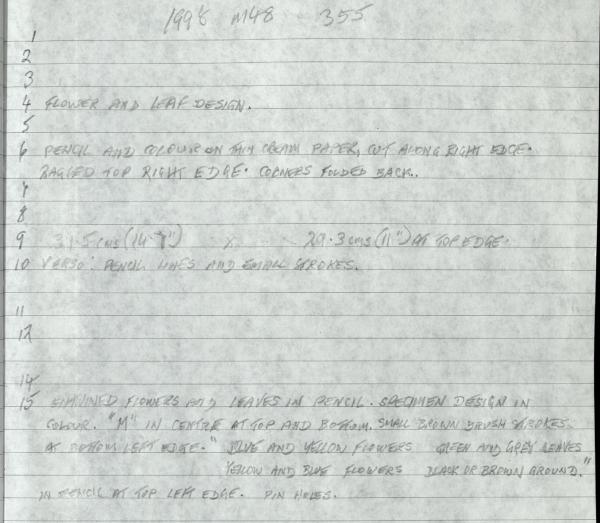 1998 M48 355
1
2
3
4 FLOWER AND LEAF DESIGN.
5
6 PENCIL AND COLOUR ON THIN CREAM PAPER, CUT ALONG RIGHT EDGE.
RAGGED TOP RIGHT EDGE. CORNERS FOLDED BACK..
7
8
9 .5 cms (14 ") x 29.3 cms (11") AT TOP EDGE.
10 VERSO: PENCIL LINES AND SMALL STROKES.
11
12
14
15 FLOWERS AND LEAVES IN PENCIL. SPECIMEN DESIGN IN
COLOUR. "M" IN CENTRE AT TOP AND BOTTOM. SMALL BROWN BRUSH STROKES
AT BOTTOM LEFT EDGE. " BLUE AND YELLOW FLOWERS GREEN AND GREY LEAVES
YELLOW AND BLUE FLOWERS BLACK OR BROWN GROUND."
IN PENCIL AT TOP LEFT EDGE. PIN HOLES.